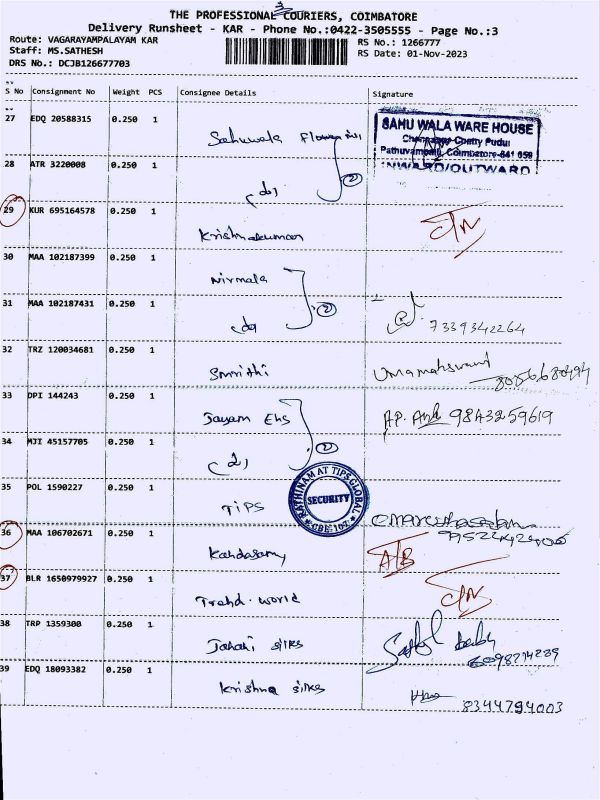 THE PROFESSIONAL COURIERS, COIMBATORE
Delivery Runsheet - KAR - Phone No.:0422-3505555 - Page No.:3
Route: VAGARAYAMPALAYAM KAR
RS No.: 1266777
Staff: MS.SATHESH
RS Date: 01-Nov-2023
DRS No.: DCJB126677703
S No Consignment No Weight PCS Consignee Details Signature
27 EDQ 20588315 0.250 1 Sahuwala
SAHU WALA WARE HOUSE
Chetty Pudur
Coimbatore-641 659
INWARD/OUTWARD
28 ATR 3220008 0.250 1 (do) (2)
29 KUR 695164578 0.250 1 Krishnakumar
30 MAA 102187399 0.250 1 Nirmala
31 MAA 102187431 0.250 1 (do) (2) 7339342264
32 TRZ 120034681 0.250 1 Smrithi
33 DPI 144243 0.250 1 Jayam 9843259619
34 MJI 45157705 0.250 1 (2)
35 POL 1590227 0.250 1 TIPS
RATHINAM AT TIPS GLOBAL
SECURITY
36 MAA 106702671 0.250 1 Kandasamy
37 BLR 1650979927 0.250 1 Trend world
38 TRP 1359300 0.250 1 silks
39 EDQ 18093382 0.250 1 Krishna silks 8344794003